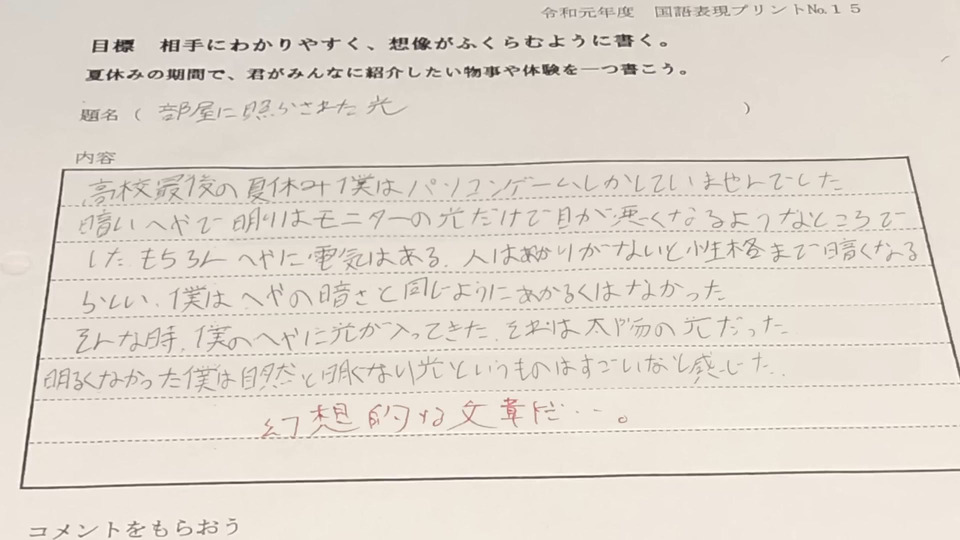 令和元年度 国語表現プリントNo.15
目標 相手にわかりやすく、想像がふくらむように書く。
夏休みの期間で、君がみんなに紹介したい物事や体験を一つ書こう。
題名（ 部屋に照らされた光 ）
内容
高校最後の夏休み僕はパソコンゲームしかしていませんでした
暗いへやで明りはモニターの光だけで目が悪くなるようなところで
したもちろんへやに電気はある、人はあかりがないと性格まで暗くなる
らしい、僕はへやの暗さと同じようにあかるくはなかった
そんな時、僕のへやに光が入ってきた、それは太陽の光だった
明るくなかった僕は自然と明くない光というものはすごいなと感じた、
幻想的な文章だ…。
コメントをもらおう